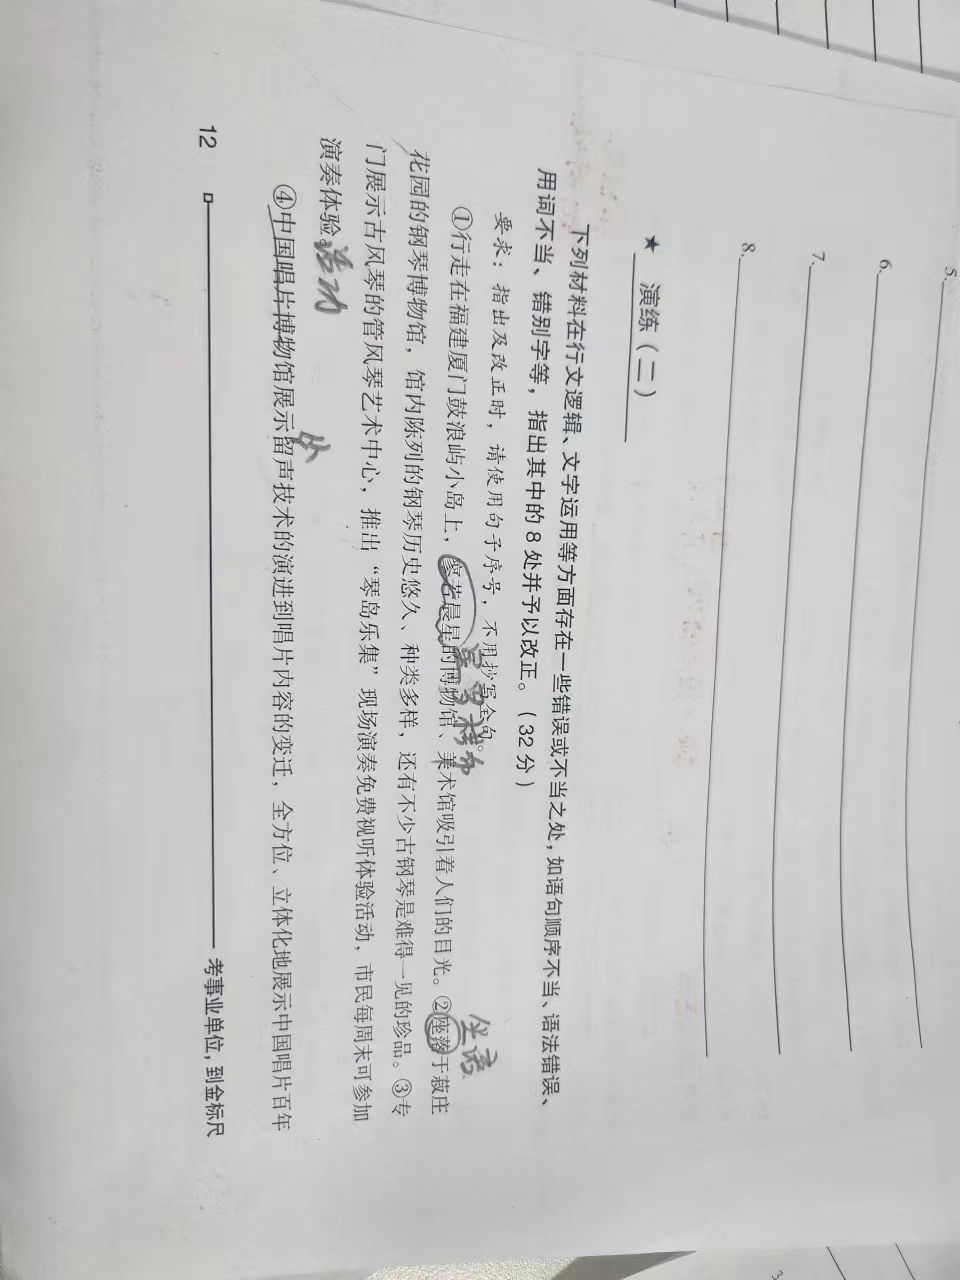 5.
6.
7.
8.
★ 演练（二）
下列材料在行文逻辑、文字运用等方面存在一些错误或不当之处，如语句顺序不当、语法错误、
用词不当、错别字等，指出其中的 8 处并予以改正。（32 分）
要求：指出及改正时，请使用句子序号，不用抄写全句。
①行走在福建厦门鼓浪屿小岛上，寥若晨星的博物馆、美术馆吸引着人们的目光。②座落于菽庄
星罗棋布
坐落
花园的钢琴博物馆，馆内陈列的钢琴历史悠久、种类多样，还有不少古钢琴是难得一见的珍品。③专
门展示古风琴的管风琴艺术中心，推出“琴岛乐集”现场演奏免费视听体验活动，市民每周末可参加
演奏体验。
活动
④中国唱片博物馆展示留声技术的演进到唱片内容的变迁，全方位、立体化地展示中国唱片百年
从
12
考事业单位，到金标尺
3.